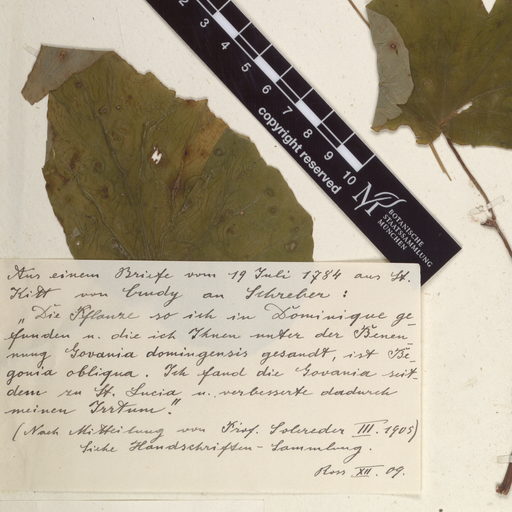 2 3 4 5 6 7 8 9 10
copyright reserved
BOTANISCHE
STAATSSAMMLUNG
MÜNCHEN
Aus einem Briefe vom 19 Juli 1784 aus St.
Kitt von Crudy an Schreber :
„Die Pflanze so ich in Dominique ge-
funden u. die ich Ihnen unter der Benen-
nung Govania domingensis gesandt, ist Be-
gonia obliqua. Ich fand die Govania seit-
dem zu St. Lucia u. verbesserte dadurch
meinen Irrtum."
(Nach Mittheilung von Prof. Solereder III. 1905)
Siehe Handschriften-Sammlung.
Ross XII. 09.